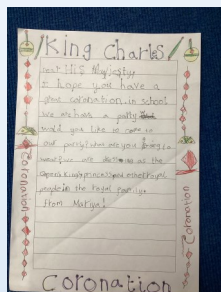 King Charles
Dear His Majesty,
I hope you have a
great coronation. in school
we are have a party
would you like to come to
our party? what are you going to
wear? we are dressing as the
king princess and other royal
people in the royal family.
from Mariya!
Coronation
Coronation
Coronation